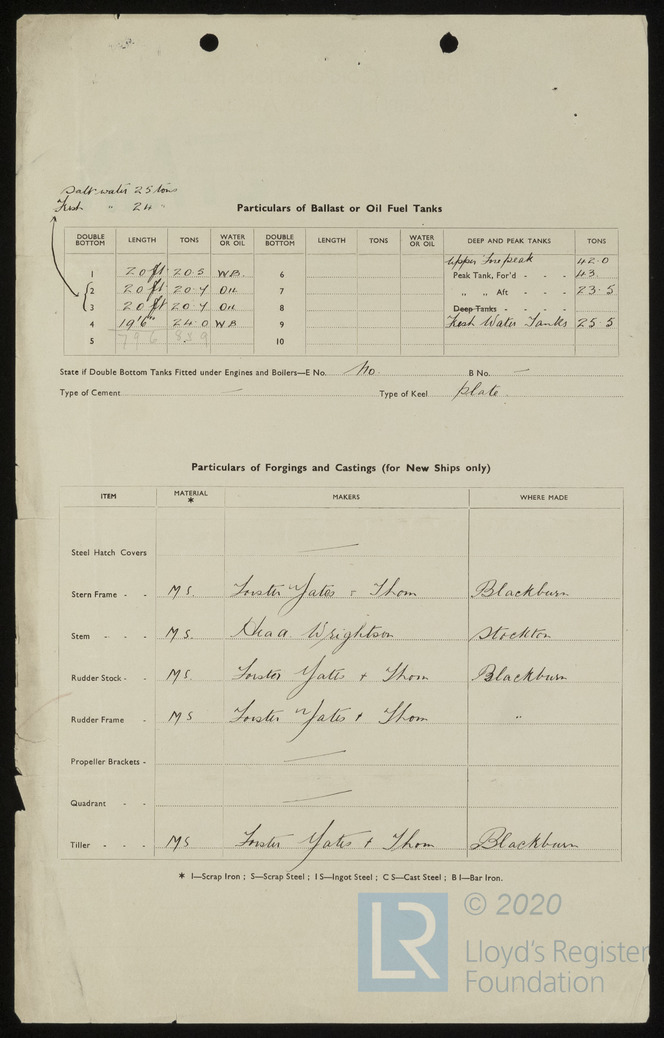 Salt water 25 tons
Fresh " 24 "
Particulars of Ballast or Oil Fuel Tanks
DOUBLE BOTTOM LENGTH TONS WATER OR OIL DOUBLE BOTTOM LENGTH TONS WATER OR OIL DEEP AND PEAK TANKS TONS
Upper Forepeak 42.0
1 20 ft 20.5 W.B. 6 Peak Tank, For'd - - - 43.
2 20 ft 20.7 Oil 7 " " Aft - - - 23.5
3 20 ft 20.7 Oil 8 Deep Tanks - - - -
4 19'6" 24.0 W B 9 Fresh Water Tanks 25.5
5 79 6 85 9 10
State if Double Bottom Tanks Fitted under Engines and Boilers—E No. No. B No. —
Type of Cement — Type of Keel plate.
Particulars of Forgings and Castings (for New Ships only)
ITEM MATERIAL * MAKERS WHERE MADE
Steel Hatch Covers —
Stern Frame - - M S. Foster Yates & Thom Blackburn
Stem - - - M S. Head Wrightson Stockton
Rudder Stock - - M S. Foster Yates & Thom Blackburn
Rudder Frame - M S Foster Yates & Thom "
Propeller Brackets - —
Quadrant - - —
Tiller - - - M S Foster Yates & Thom Blackburn
* I—Scrap Iron ; S—Scrap Steel ; I S—Ingot Steel ; C S—Cast Steel ; B I—Bar Iron.
LR
© 2020
Lloyd's Register
Foundation